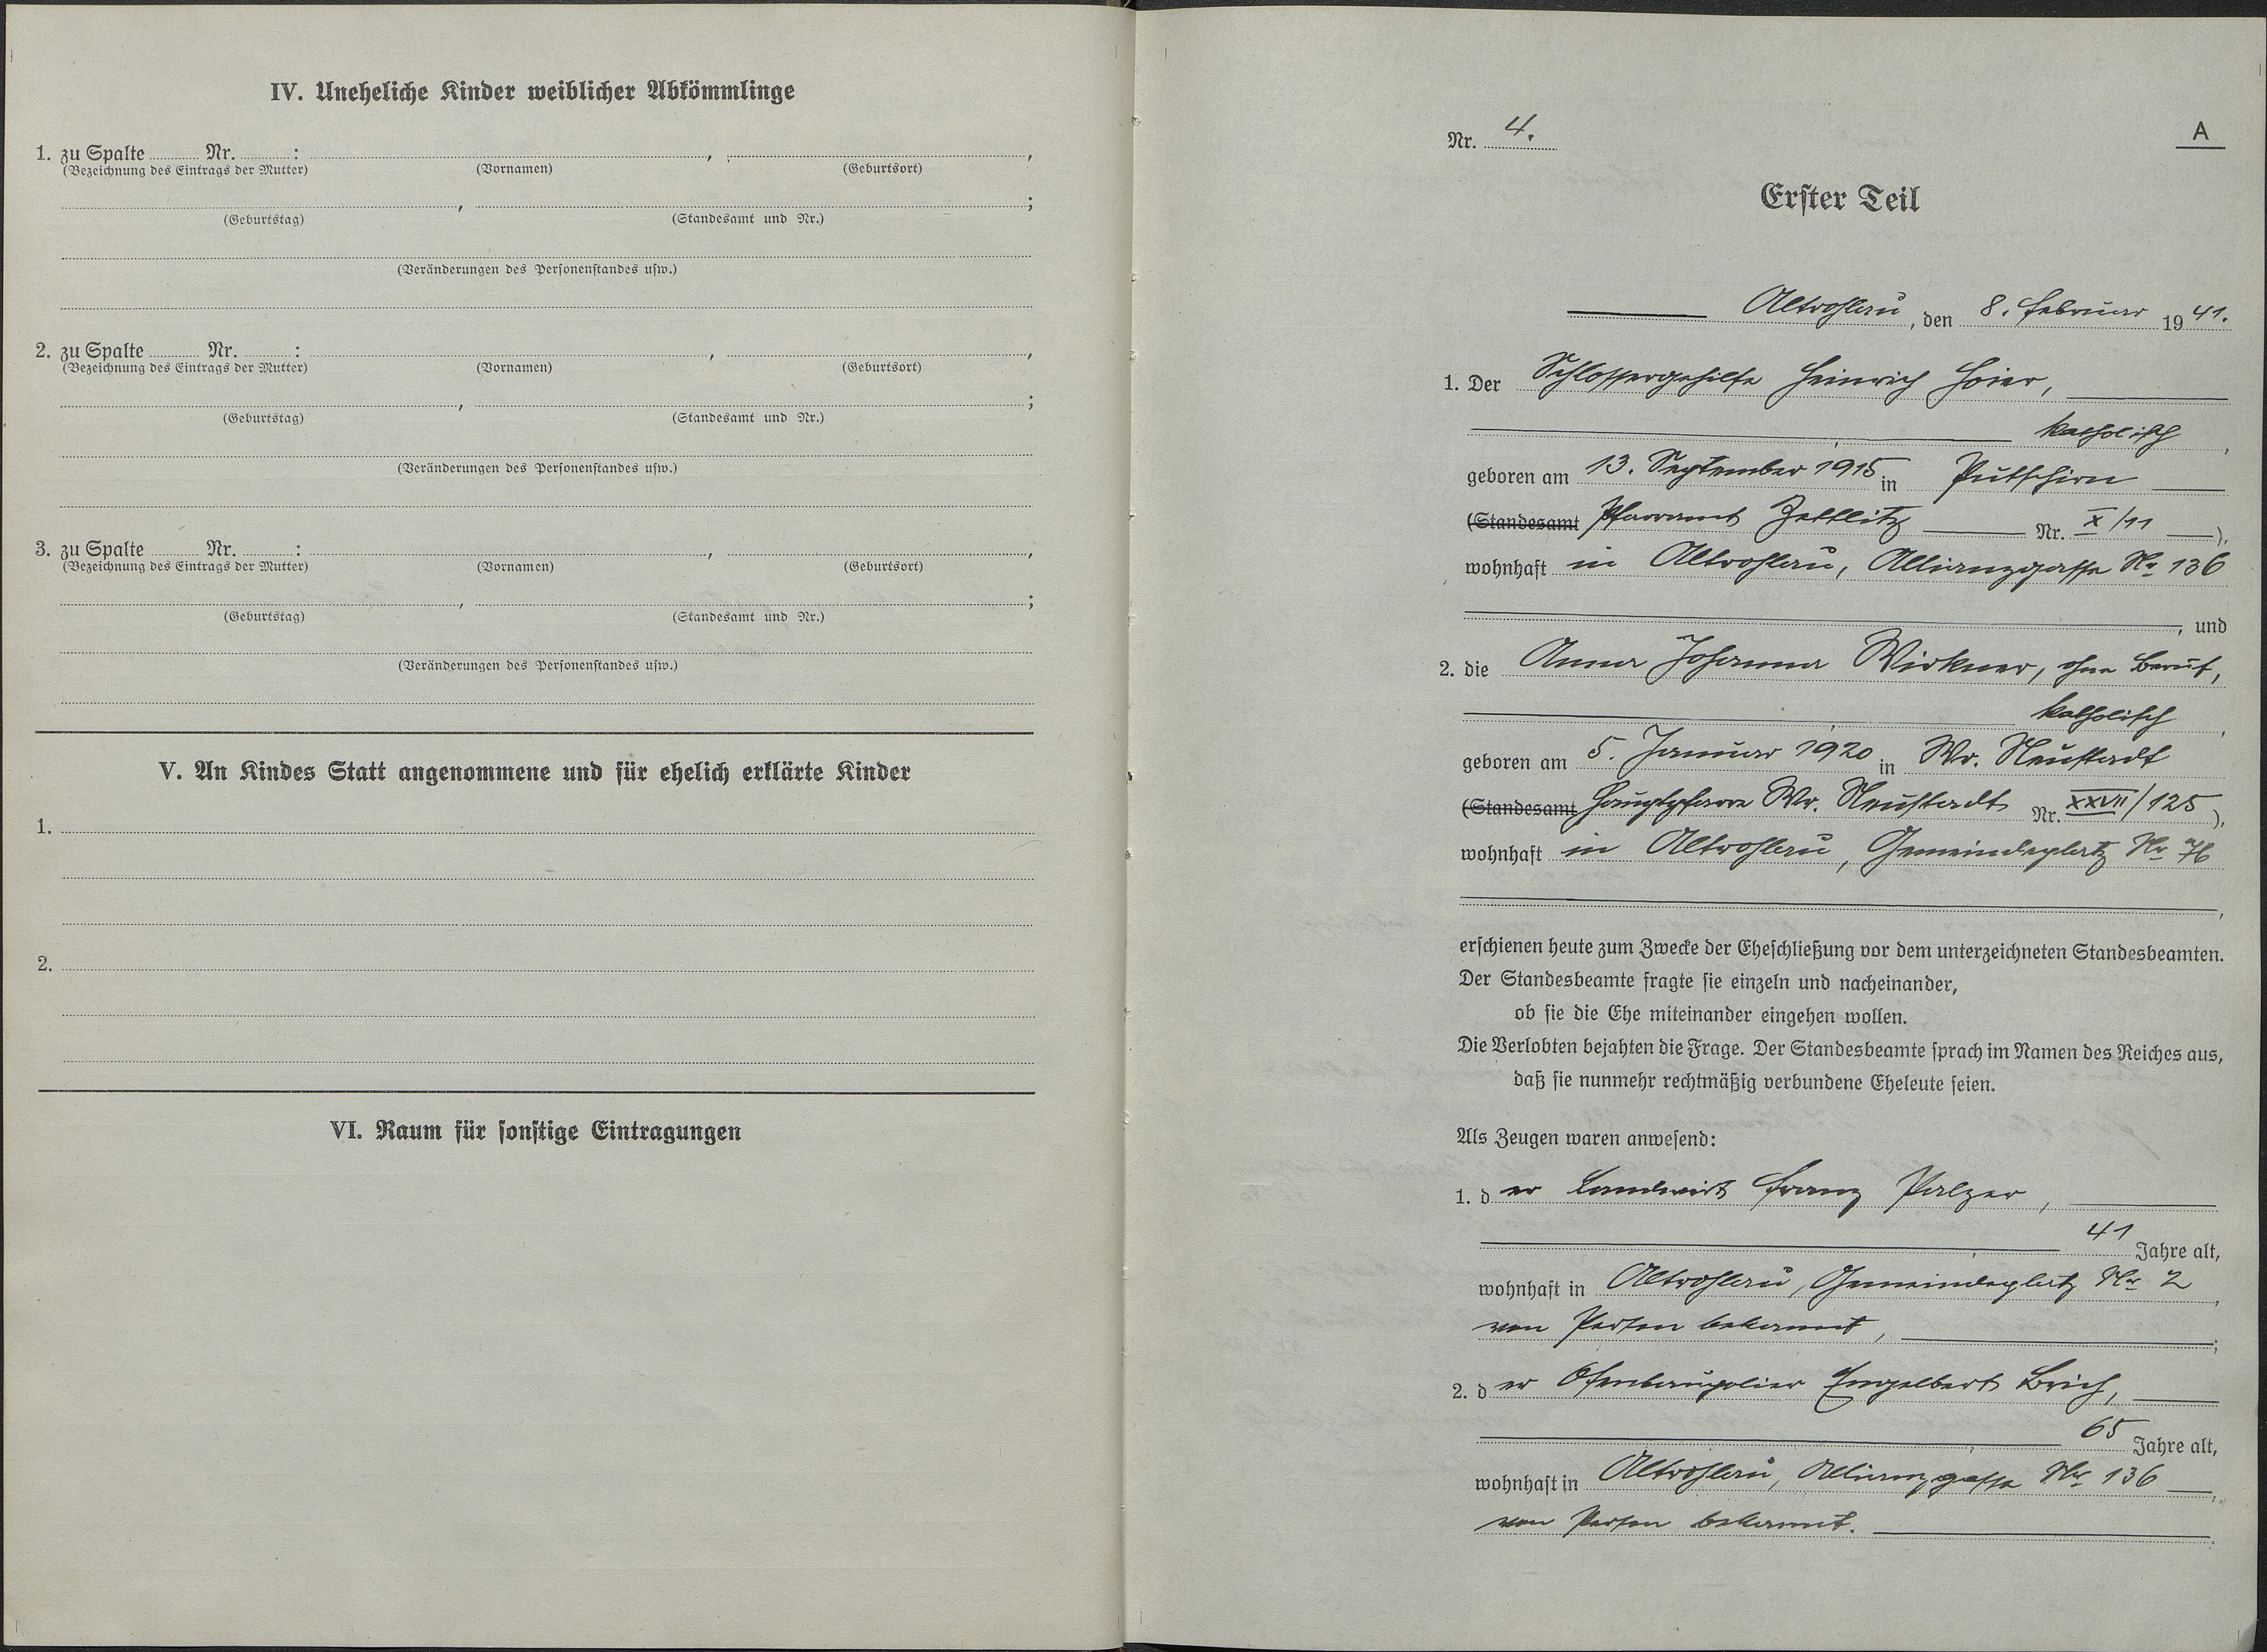 IV. Uneheliche Kinder weiblicher Abkömmlinge
1. zu Spalte ........ Nr. ........ : ........, ........,
(Bezeichnung des Eintrags der Mutter) (Vornamen) (Geburtsort)
........, ........;
(Geburtstag) (Standesamt und Nr.)
(Veränderungen des Personenstandes usw.)
2. zu Spalte ........ Nr. ........ : ........, ........,
(Bezeichnung des Eintrags der Mutter) (Vornamen) (Geburtsort)
........, ........;
(Geburtstag) (Standesamt und Nr.)
(Veränderungen des Personenstandes usw.)
3. zu Spalte ........ Nr. ........ : ........, ........,
(Bezeichnung des Eintrags der Mutter) (Vornamen) (Geburtsort)
........, ........;
(Geburtstag) (Standesamt und Nr.)
(Veränderungen des Personenstandes usw.)
V. An Kindes Statt angenommene und für ehelich erklärte Kinder
1.
2.
VI. Raum für sonstige Eintragungen
Nr. 4.
A
Erster Teil
Altrohlau, den 8. Februar 1941.
1. Der Schlossergehilfe Heinrich Hoier,
katholisch,
geboren am 13. September 1915 in Putschirn
(Standesamt Pfarramt Zettlitz Nr. X/11),
wohnhaft in Altrohlau, Allianzgasse Nr 136
, und
2. die Anna Johanna Wirkner, ohne Beruf,
katholisch,
geboren am 5. Januar 1920 in Wr. Neustadt
(Standesamt Hauptpfarre Wr. Neustadt Nr. XXVII/125),
wohnhaft in Altrohlau, Gemeindeplatz Nr 76
,
erschienen heute zum Zwecke der Eheschließung vor dem unterzeichneten Standesbeamten.
Der Standesbeamte fragte sie einzeln und nacheinander,
ob sie die Ehe miteinander eingehen wollen.
Die Verlobten bejahten die Frage. Der Standesbeamte sprach im Namen des Reiches aus,
daß sie nunmehr rechtmäßig verbundene Eheleute seien.
Als Zeugen waren anwesend:
1. der Landwirt Franz Palzer,
41 Jahre alt,
wohnhaft in Altrohlau, Gemeindeplatz Nr 2,
von Person bekannt,;
2. der Ofenbaupolier Engelbert Brich,
65 Jahre alt,
wohnhaft in Altrohlau, Allianzgasse Nr 136,
von Person bekannt.